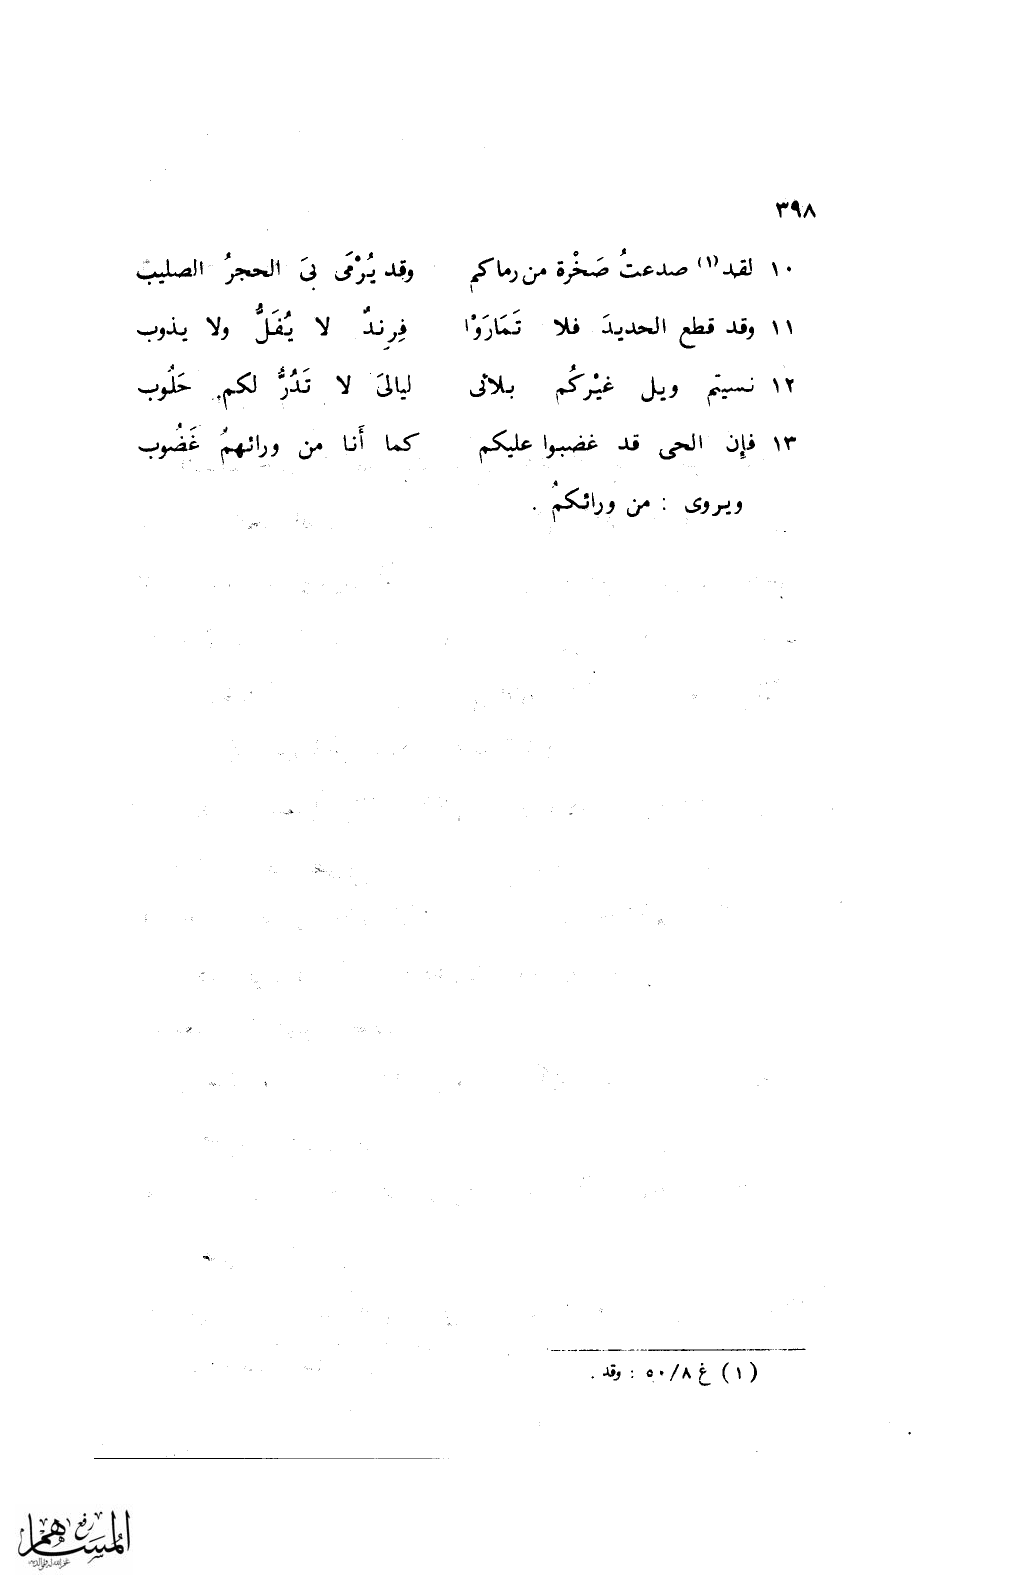 ٣٩٨
١٠ لقد (١) صدعتُ صَخْرة من رماكم وقد يُرْمَى بىَ الحجرُ الصليب
١١ وقد قطع الحديدَ فلا تَمَارَوْا فِرِندٌ لا يُفَلُّ ولا يذوب
١٢ نسيتم ويل غيْركُم بلائى ليالىَ لا تَدُرُّ لكم حَلُوب
١٣ فإِن الحى قد غضبوا عليكم كما أَنا من ورائهمُ غَضُوب
ويروى : من ورائكمُ .
(١) غ ٥٠/٨ : وقد .
رفع
المساهم